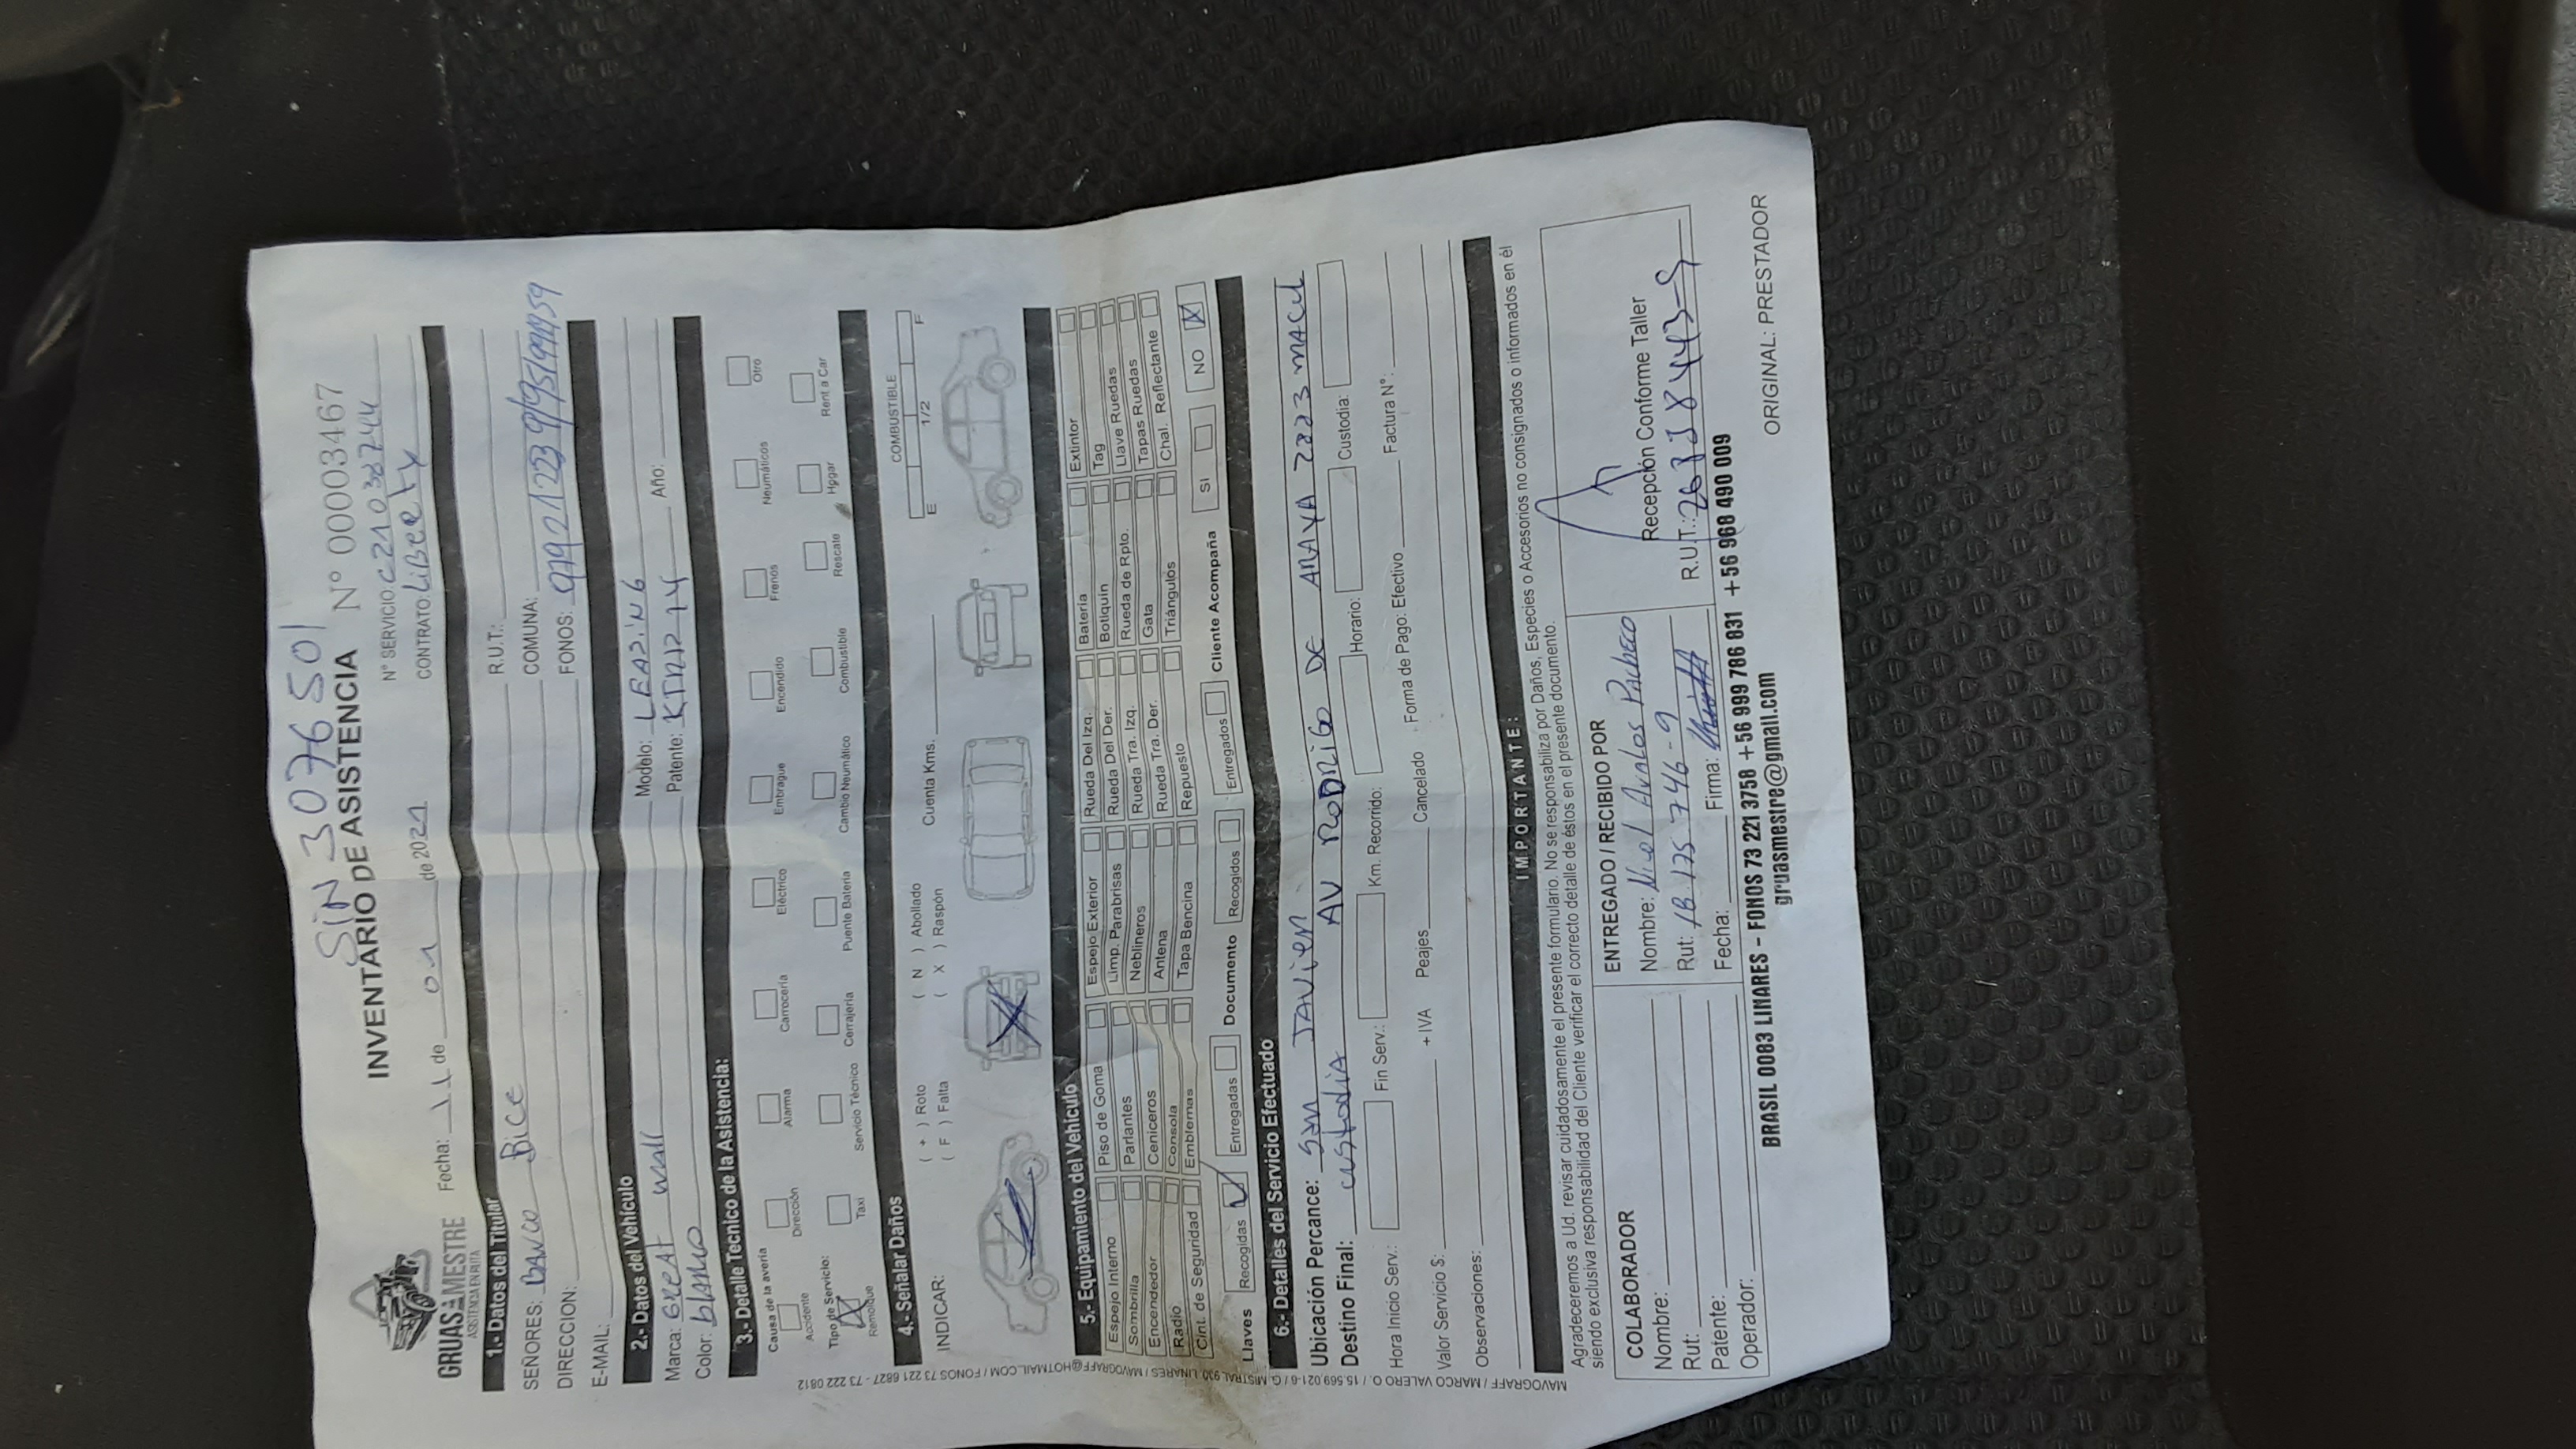 SIN 3076501
INVENTARIO DE ASISTENCIA Nº 0003467
GRUAS MESTRE
ASISTENCIA EN RUTA
Fecha: 11 de 01 de 2021
Nº SERVICIO:
CONTRATO: Liberty
1.- Datos del Titular
SEÑORES: BANCO BICE R.U.T.:
DIRECCION: COMUNA:
E-MAIL: FONOS:
2.- Datos del Vehículo
Marca: GREAT WALL Modelo: LEASING
Color: blanco Patente: Año:
3.- Detalle Tecnico de la Asistencia:
Causa de la avería
Accidente Dirección Alarma Carrocería Eléctrico Embrague Encendido Frenos Neumáticos Otro
Tipo de Servicio:
Remolque Taxi Servicio Técnico Cerrajería Puente Batería Cambio Neumático Combustible Rescate Hogar Rent a Car
4.- Señalar Daños
INDICAR: ( + ) Roto ( N ) Abollado Cuenta Kms. COMBUSTIBLE
( F ) Falta ( X ) Raspón E 1/2 F
5.- Equipamiento del Vehículo
Espejo Interno Piso de Goma Espejo Exterior Rueda Del Izq. Batería Extintor
Sombrilla Parlantes Limp. Parabrisas Rueda Del Der. Botiquin Tag
Encendedor Ceniceros Neblineros Rueda Tra. Izq. Rueda de Rpto. Llave Ruedas
Radio Consola Antena Rueda Tra. Der. Gata Tapas Ruedas
Cint. de Seguridad Emblemas Tapa Bencina Repuesto Triángulos Chal. Reflectante
Llaves Recogidas Entregadas Documento Recogidos Entregados Cliente Acompaña SI NO
6.- Detalles del Servicio Efectuado
Ubicación Percance: San Javier
Destino Final: custodia AV RODRIGO DE ARAYA MACUL
Hora Inicio Serv.: Fin Serv.: Km. Recorrido: Horario: Custodia:
Valor Servicio $: + IVA Peajes Cancelado Forma de Pago: Efectivo Factura N°:
Observaciones:
IMPORTANTE:
Agradeceremos a Ud. revisar cuidadosamente el presente formulario. No se responsabiliza por Daños, Especies o Accesorios no consignados o informados en él
siendo exclusiva responsabilidad del Cliente verificar el correcto detalle de éstos en el presente documento.
COLABORADOR
Nombre:
Rut:
Patente:
Operador:
ENTREGADO / RECIBIDO POR
Nombre: Avalos Pacheco
Rut: 18.175.746-9
Fecha: Firma:
Recepción Conforme Taller
R.U.T.:
BRASIL 0083 LINARES - FONOS 73 221 3758 +56 999 786 831 +56 968 490 009
gruasmestre@gmail.com
ORIGINAL: PRESTADOR
MAVOGRAFF / MARCO VALERO O. / 15.569.021-6 / G. MISTRAL 930 LINARES / MAVOGRAFF@HOTMAIL.COM / FONOS 73 221 6827 - 73 222 0812